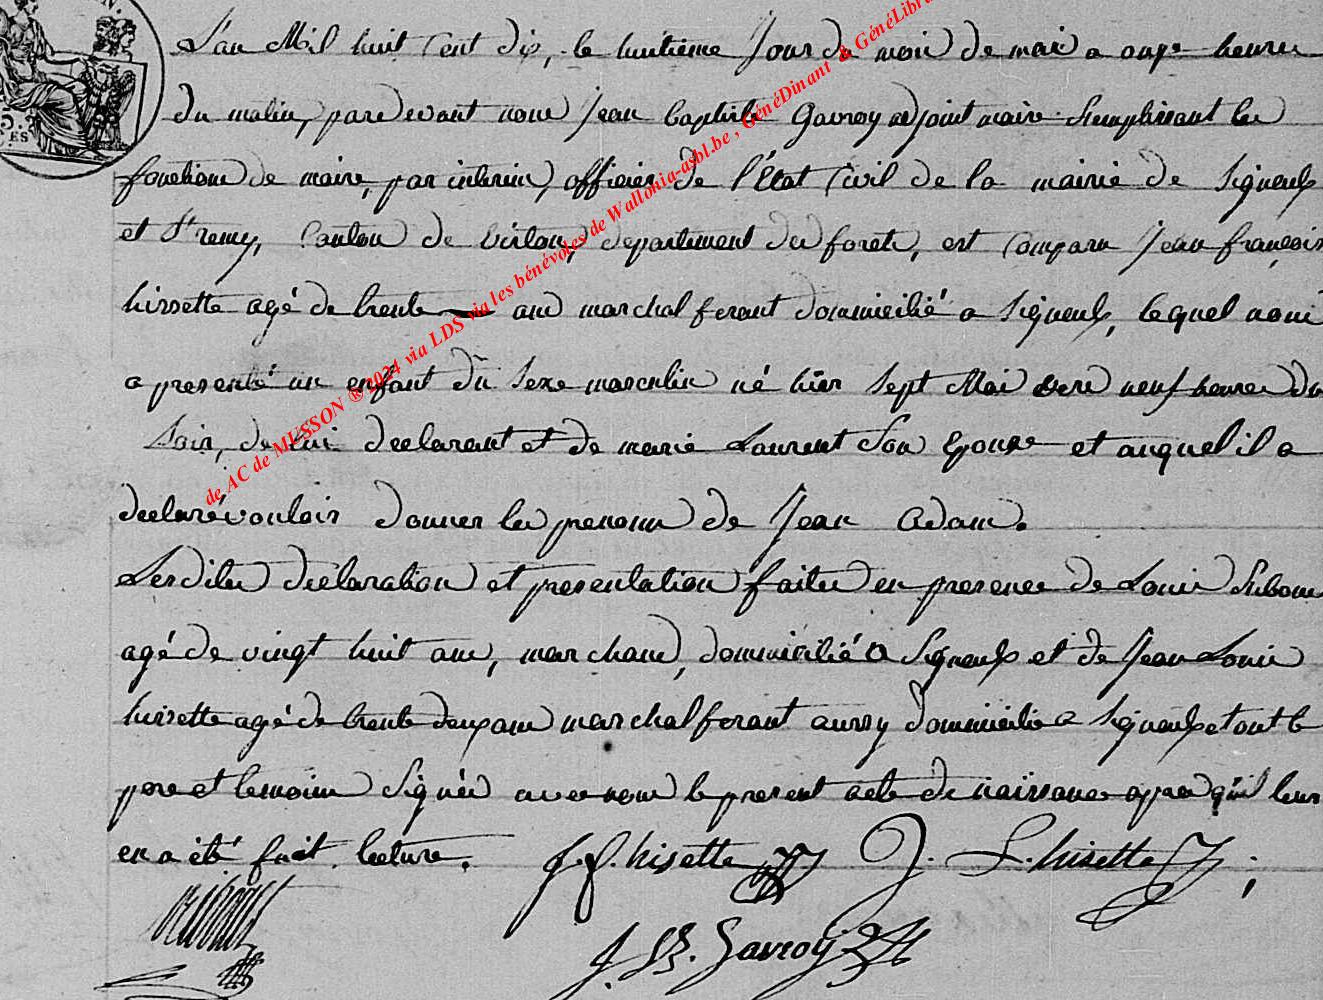 L'an Mil huit Cent dix, le huitieme Jour du mois de mai a onze heures
du matin, pardevant nous Jean Baptiste Gavroy adjoint maire Remplissant les
fonctions de maire, par interim, officier de l'Etat Civil de la mairie de Signeulx
et St remy, Canton de Virton, departement des forets, est Comparu Jean françois
hissette agé de trente ans marchal ferant domicilié a Signeulx, lequel nous
a presenté un enfant du Sexe masculin né hier Sept Mai vers neuf heures du
Soir, de lui declarant et de marie Laurent Son Epouse et auquel il a
declaré vouloir donner les prenoms de Jean Adam.
Lesdites declaration et presentation faites en presence de Louis
agé de vingt huit ans, marchand, domicilié a Signeulx et de Jean Louis
hissette agé de trente deux ans marchal ferant aussy domicilié a Signeulx et ont le
pere et temoins Signés avec nous le present acte de naissance apres qu'il leur
en a été fait lecture.
J. f. hisette J. L. hisette
J. B. Gavroy
de AC de MUSSON ® 2024 via LDS via les bénévoles de Wallonia-asbl.be , GénéDinant & GénéLibra